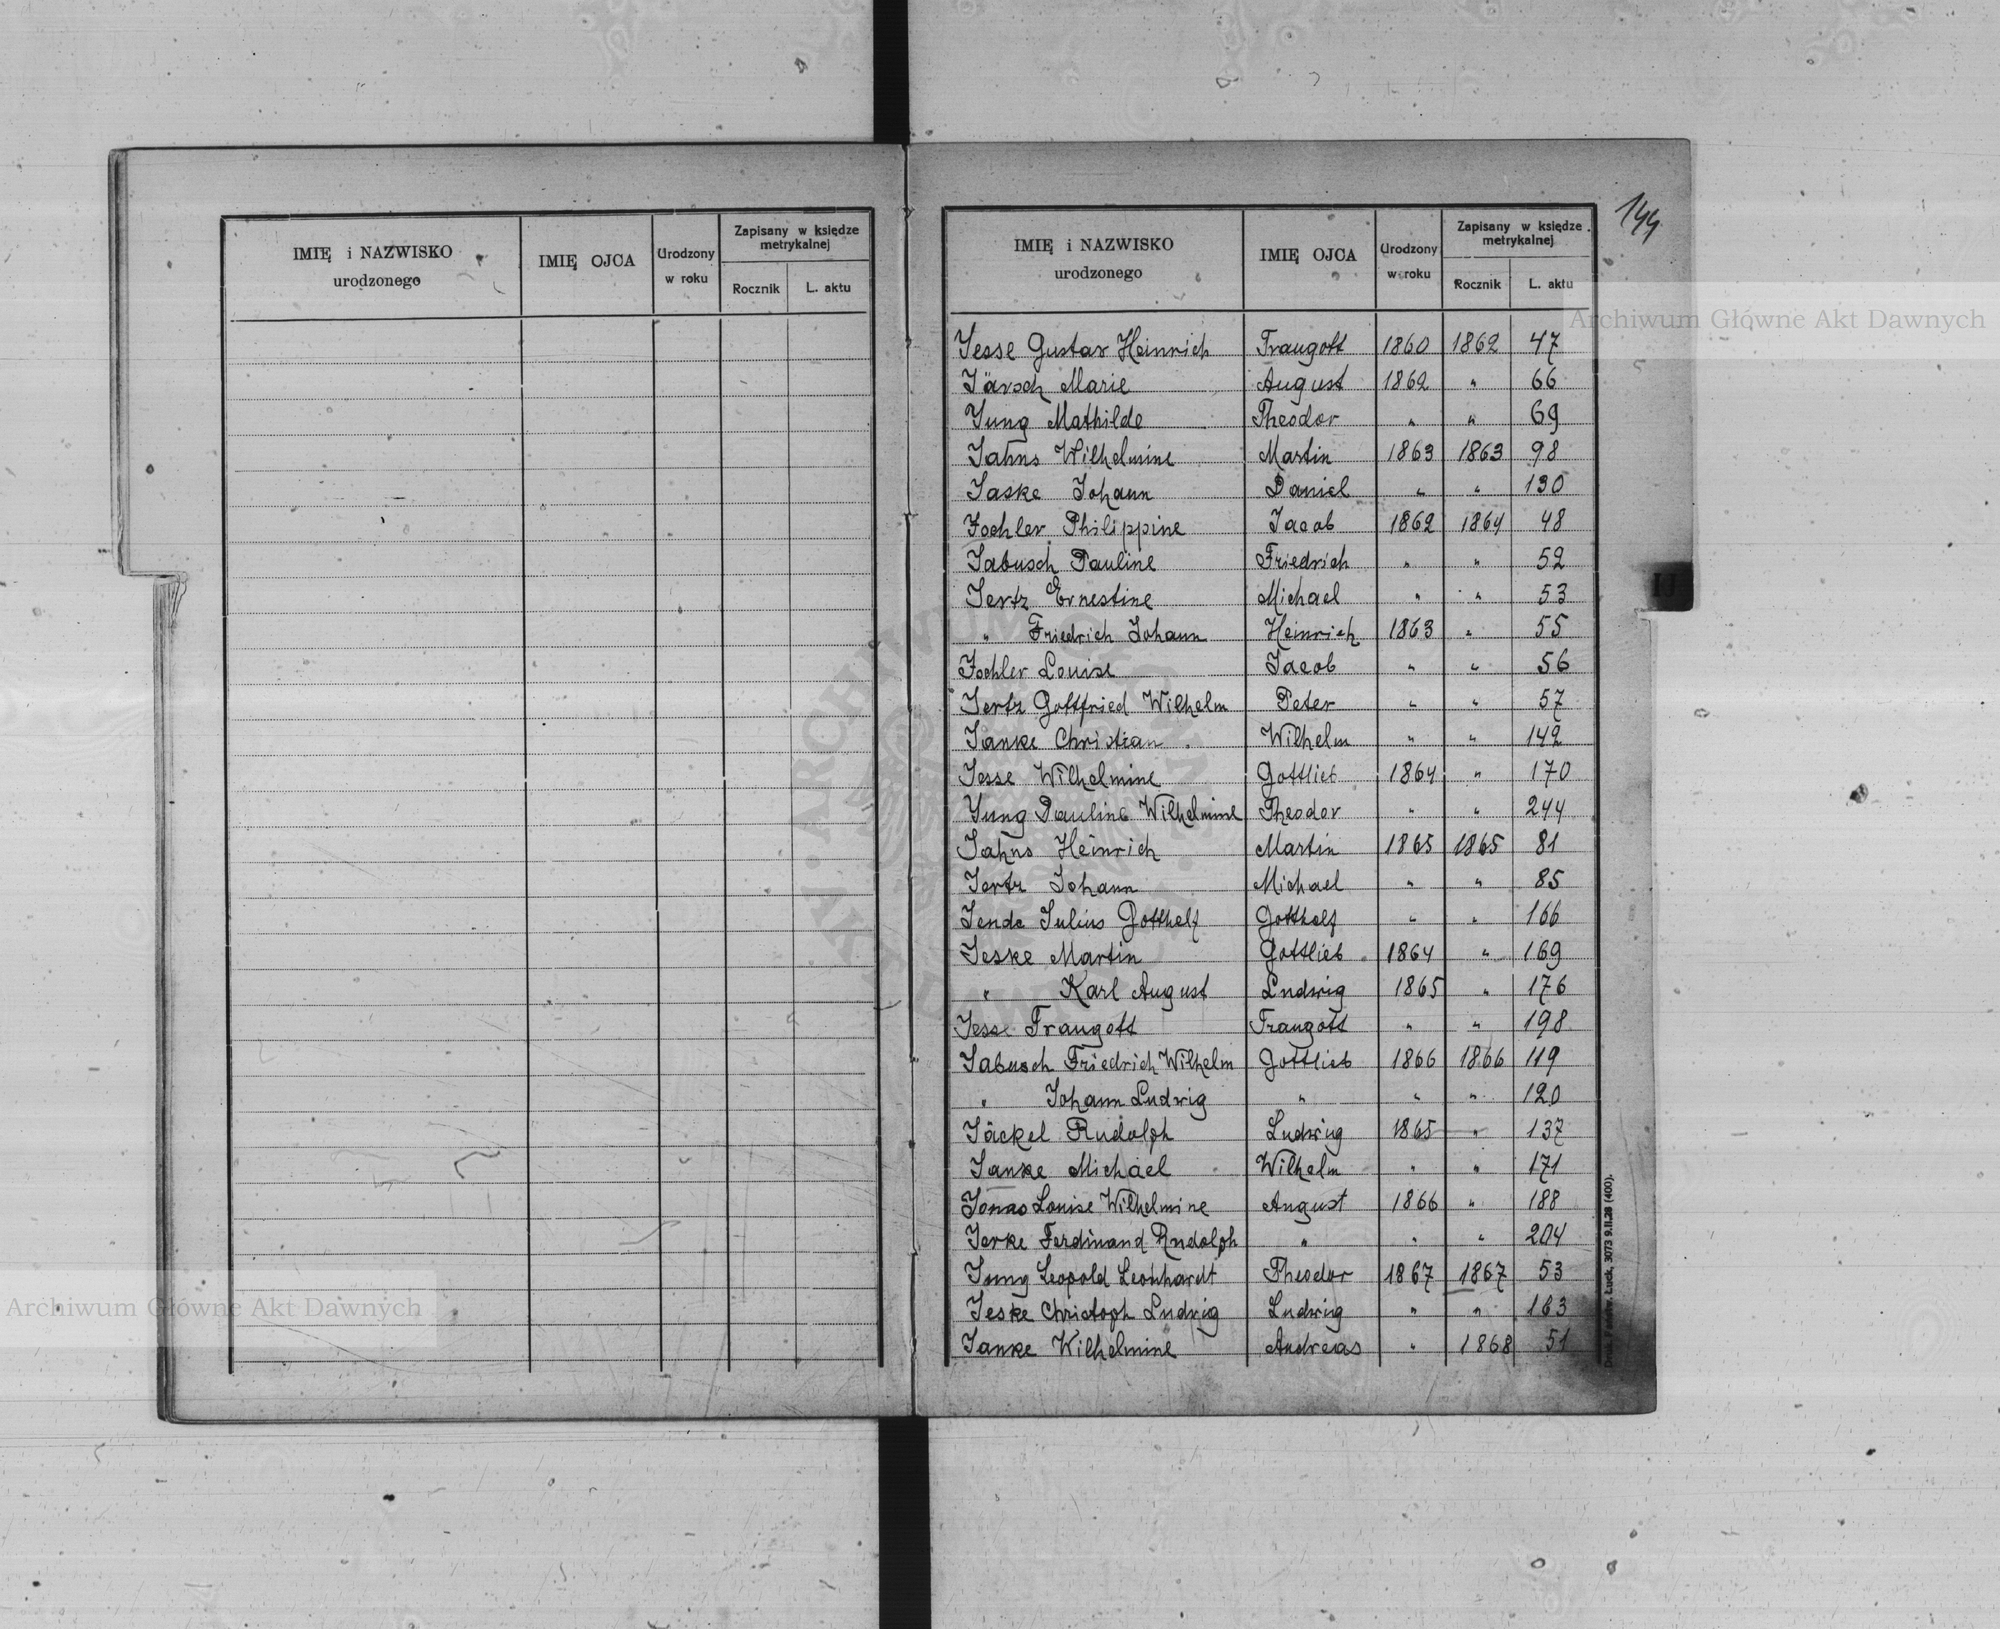 IMIĘ i NAZWISKO
urodzonego
IMIĘ OJCA
Urodzony
w roku
Zapisany w księdze
metrykalnej
Rocznik
L. aktu
144
IMIĘ i NAZWISKO
urodzonego
IMIĘ OJCA
Urodzony
w roku
Zapisany w księdze
metrykalnej
Rocznik
L. aktu
Archiwum Główne Akt Dawnych
Jesse Gustav Heinrich Traugott 1860 1862 47
Järsch Marie August 1862 " 66
Jung Mathilde Theodor " " 69
Jahns Wilhelmine Martin 1863 1863 98
Jaske Johann Daniel " " 130
Jochler Philippine Jacob 1862 1864 48
Jabusch Pauline Friedrich " " 52
Jertz Ernestine Michael " " 53
" Friedrich Johann Heinrich 1863 " 55
Jochler Louise Jacob " " 56
Jertz Gottfried Wilhelm Peter " " 57
Janke Christian Wilhelm " " 142
Jesse Wilhelmine Gottlieb 1864 " 170
Jung Pauline Wilhelmine Theodor " " 244
Jahns Heinrich Martin 1865 1865 81
Jertz Johann Michael " " 85
Jende Julius Gotthelf Gotthelf " " 166
Jeske Martin Gottlieb 1864 " 169
" Karl August Ludwig 1865 " 176
Jesse Traugott Traugott " " 198
Jabusch Friedrich Wilhelm Gottlieb 1866 1866 119
" Johann Ludwig " " " 120
Jäckel Rudolph Ludwig 1865 " 137
Janke Michael Wilhelm " " 171
Jonas Louise Wilhelmine August 1866 " 188
Jerke Ferdinand Rudolph " " " 204
Jung Leopold Leonhardt Theodor 1867 1867 53
Jeske Christoph Ludwig Ludwig " " 163
Janke Wilhelmine Andreas " 1868 51
IJ
Łuck, 3073 9.II.28 (400).
Archiwum Główne Akt Dawnych
ARCHIWUM GŁÓWNE AKT DAWNYCH